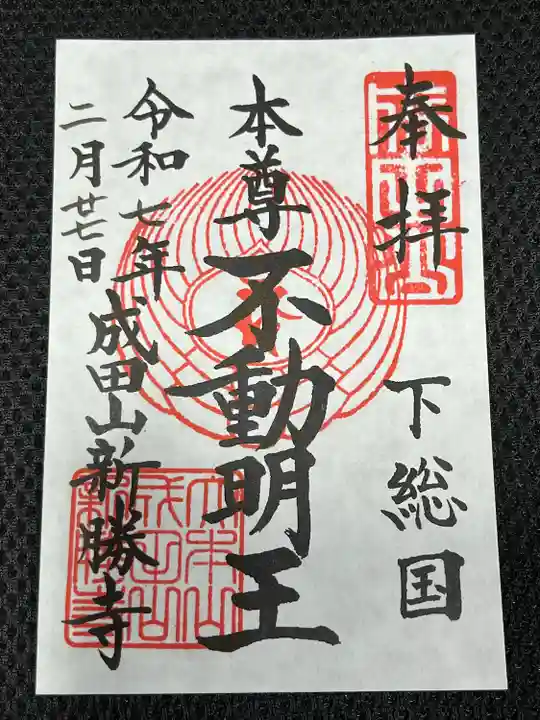 奉拝
下総国
本尊不動明王
成田山新勝寺
令和七年
二月廿七日